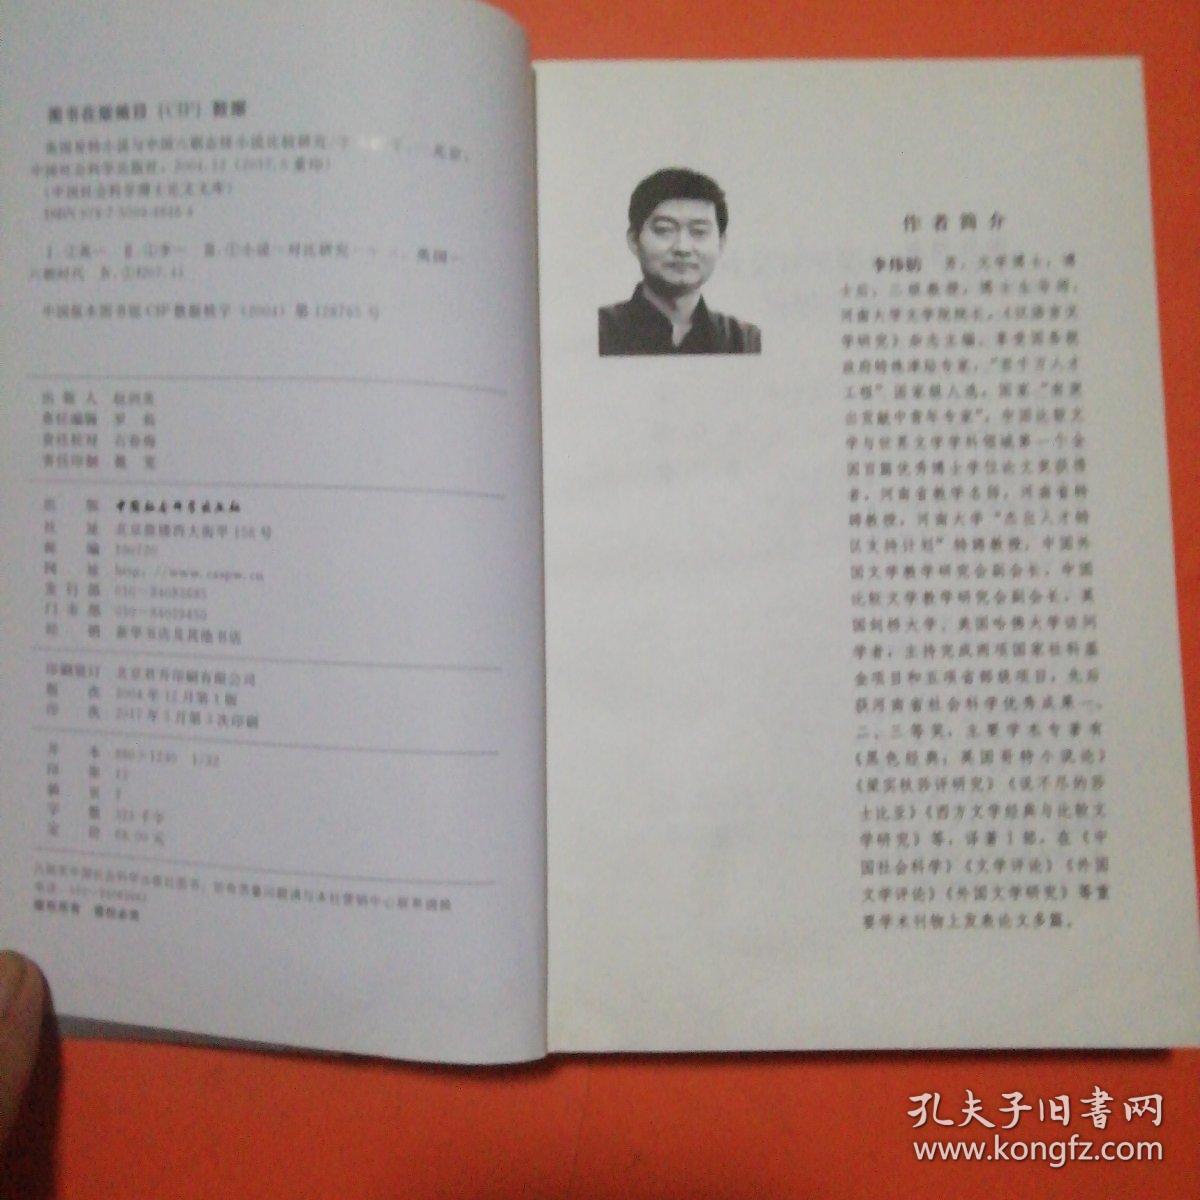 图书在版编目（CIP）数据
英国哥特小说与中国六朝志怪小说比较研究
中国社会科学出版社，2004.12（2017.5重印）
（中国社会科学博士论文文库）
中国版本图书馆CIP数据核字（2004）第128745号
出版人
责任编辑
责任校对 石春梅
责任印制
出版 中国社会科学出版社
社址 北京鼓楼西大街甲158号
邮编 100720
网址 http://www.csspw.cn
发行部 010-84083685
门市部 010-84029450
经销 新华书店及其他书店
印刷装订 北京君升印刷有限公司
版次 2004年12月第1版
印次 2017年5月第3次印刷
开本 880×1230 1/32
印张 12
插页 2
字数 323千字
定价 68.00元
凡购买中国社会科学出版社图书，如有质量问题请与本社营销中心联系调换
版权所有 侵权必究
作者简介
李伟昉 男，文学博士，博
士后，二级教授，博士生导师，
河南大学文学院院长，《汉语言文
学研究》杂志主编。享受国务院
政府特殊津贴专家，“百千万人才
工程”国家级人选，国家“有突
出贡献中青年专家”，中国比较文
学与世界文学学科领域第一个全
国百篇优秀博士学位论文奖获得
者，河南省教学名师，河南省特
聘教授，河南大学“杰出人才特
区支持计划”特聘教授，中国外
国文学教学研究会副会长，中国
比较文学教学研究会副会长，英
国剑桥大学、美国哈佛大学访问
学者，主持完成两项国家社科基
金项目和五项省部级项目，先后
获河南省社会科学优秀成果一、
二、三等奖，主要学术专著有
《黑色经典：英国哥特小说论》
《梁实秋莎评研究》《说不尽的莎
士比亚》《西方文学经典与比较文
学研究》等，译著1部，在《中
国社会科学》《文学评论》《外国
文学评论》《外国文学研究》等重
要学术刊物上发表论文多篇。
孔夫子旧书网
www.kongfz.com